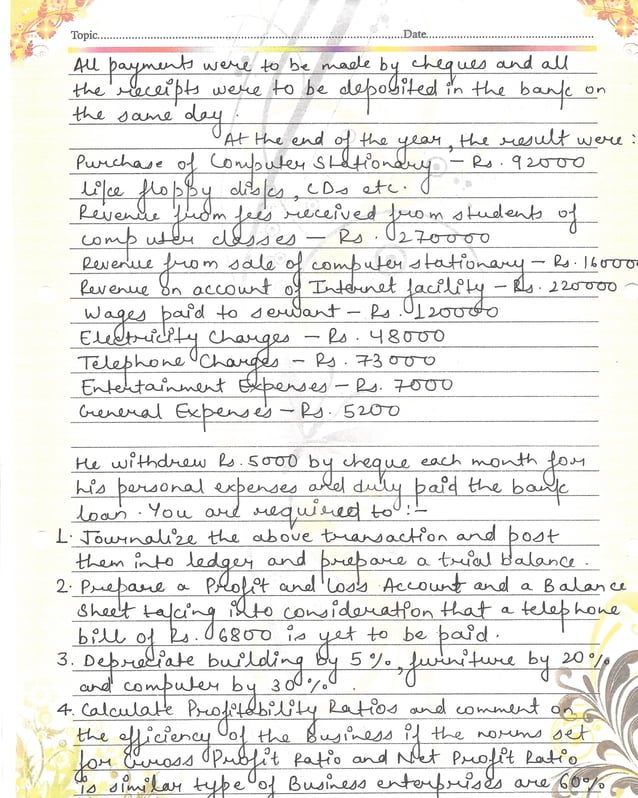 Topic.......... Date..........
All payments were to be made by cheques and all
the receipts were to be deposited in the bank on
the same day.
At the end of the year, the result were :
Purchase of Computer Stationary - Rs. 92000
like floppy disks, CDs etc.
Revenue from fees received from students of
computer classes - Rs. 270000
Revenue from sale of computer stationary - Rs. 160000
Revenue on account of Internet facility - Rs. 220000
Wages paid to servant - Rs. 120000
Electricity Charges - Rs. 48000
Telephone Charges - Rs. 73000
Entertainment Expenses - Rs. 7000
General Expenses - Rs. 5200
He withdrew Rs. 5000 by cheque each month for
his personal expenses and duly paid the bank
loan. You are required to :-
1. Journalize the above transaction and post
them into ledger and prepare a trial balance.
2. Prepare a Profit and Loss Account and a Balance
Sheet taking into consideration that a telephone
bill of Rs. 6800 is yet to be paid.
3. Depreciate building by 5%, furniture by 20%
and computer by 30%.
4. Calculate Profitability Ratios and comment on
the efficiency of the Business if the norms set
for Gross Profit Ratio and Net Profit Ratio
is similar type of Business enterprises are 60%